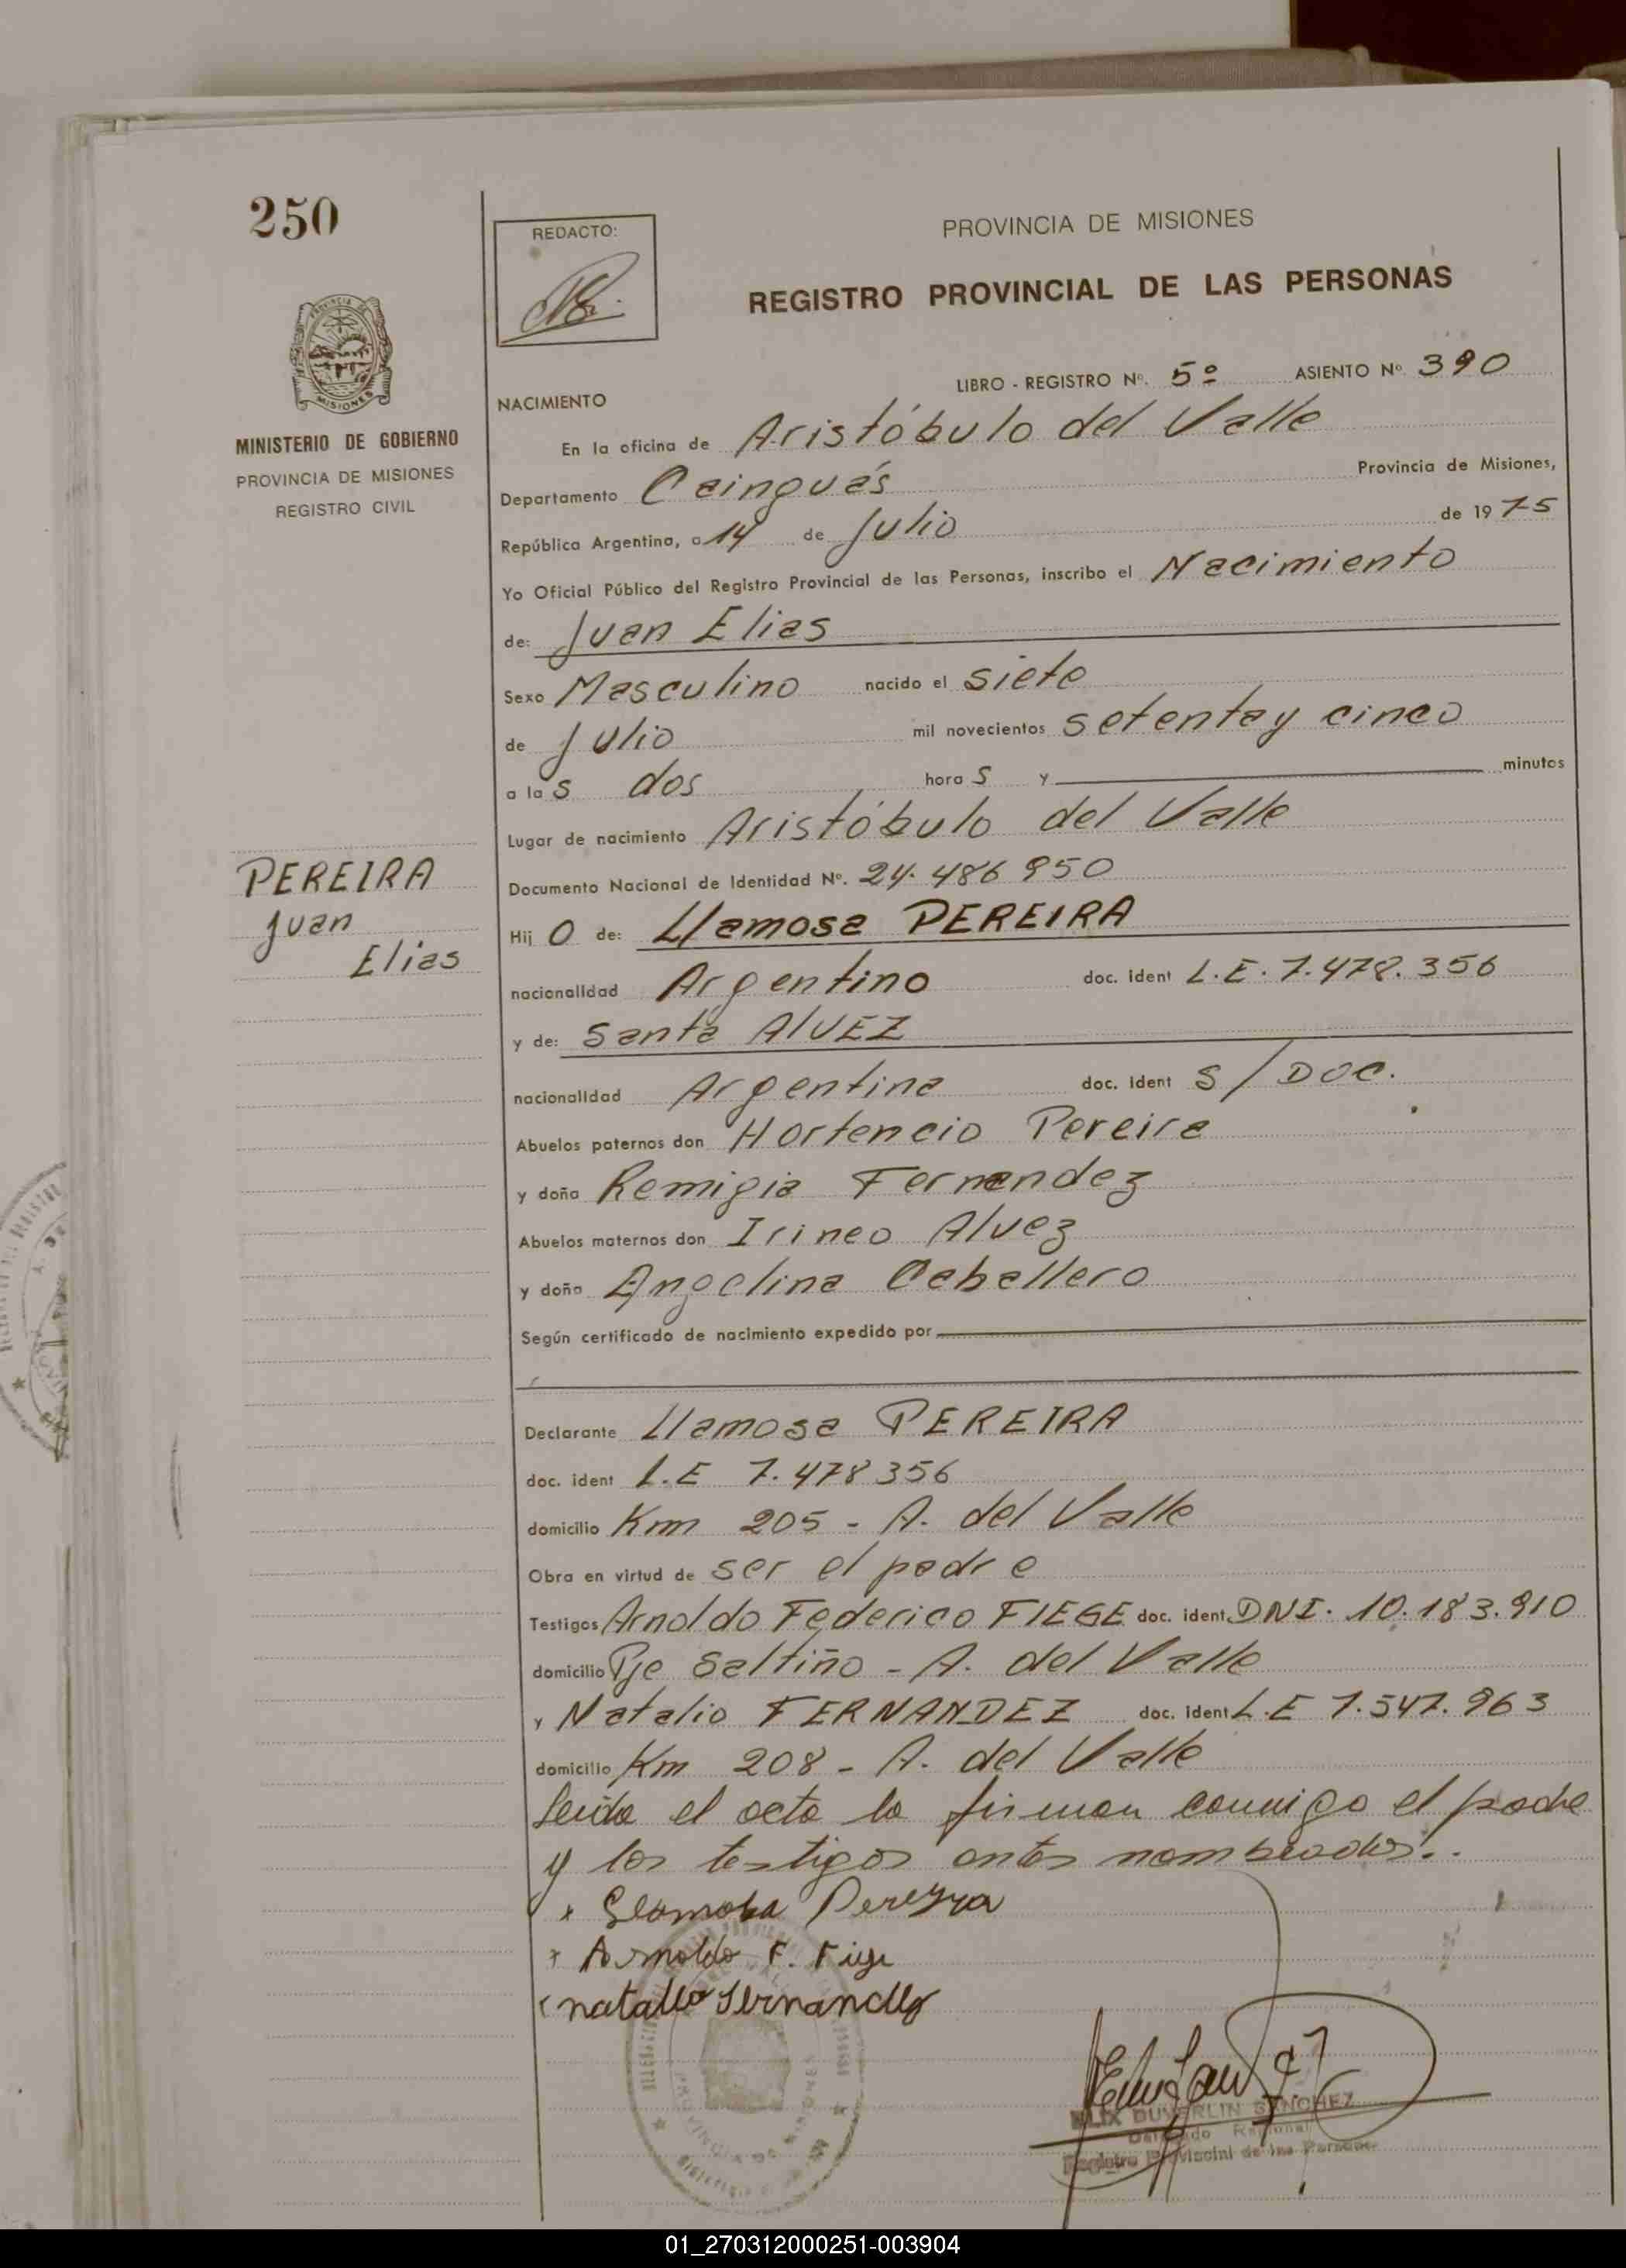 250
REDACTO:
PROVINCIA DE MISIONES
REGISTRO PROVINCIAL DE LAS PERSONAS
MISIONES
MINISTERIO DE GOBIERNO
PROVINCIA DE MISIONES
REGISTRO CIVIL
LIBRO - REGISTRO Nº. 5º ASIENTO Nº. 390
NACIMIENTO
En la oficina de Aristóbulo del Valle
Departamento Cainguás Provincia de Misiones,
República Argentina, a 14 de Julio de 1975
Yo Oficial Público del Registro Provincial de las Personas, inscribo el Nacimiento
de: Juan Elias
Sexo Masculino nacido el siete
de Julio mil novecientos setenta y cinco
a las dos horas y minutos
Lugar de nacimiento Aristóbulo del Valle
PEREIRA
Juan
Elias
Documento Nacional de Identidad Nº. 24.486 950
Hijo de: Llamosa PEREIRA
nacionalidad Argentino doc. ident L.E. 7.478.356
y de: Santa AlVEZ
nacionalidad Argentina doc. ident S/DOC.
Abuelos paternos don Hortencio Pereira
y doña Remigia Fernandez
Abuelos maternos don Irineo Alvez
y doña Angelina Caballero
Según certificado de nacimiento expedido por
Declarante Llamosa PEREIRA
doc. ident L.E 7.478356
domicilio Km 205 - A. del Valle
Obra en virtud de ser el padre
Testigos Arnoldo Federico FIEGE doc. ident. DNI. 10.183.910
domicilio Pje Saltiño - A. del Valle
y Natalio FERNANDEZ doc. ident L.E 7.547.963
domicilio Km 208 - A. del Valle
Leida el acta la firman conmigo el padre
y los testigos antes nombrados..
x Llamosa Pereyra
x Arnoldo F. Fiege
x natalio Fernandez
DUVERLIN SANCHEZ
Delegado Regional
Registro Provincial de las Personas
01_270312000251-003904